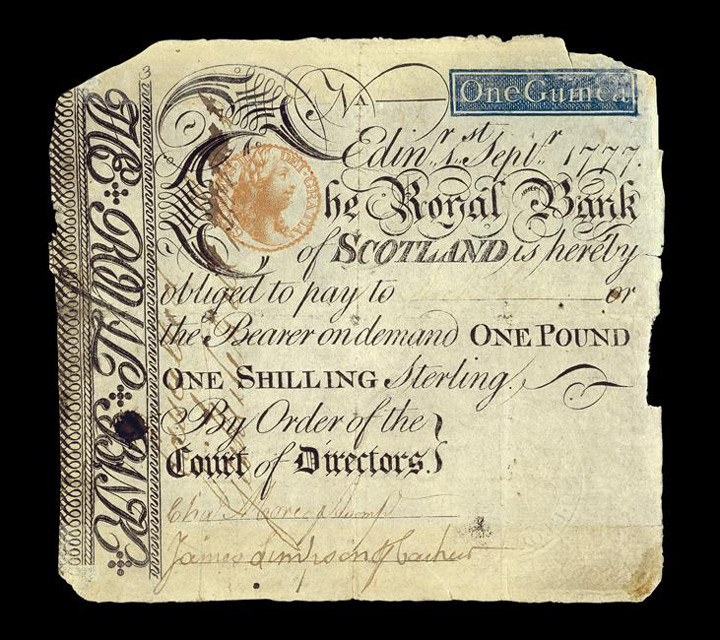 THE ROYAL BANK
3
No
One Guinea
Edinr. 1st Septr. 1777.
The Royal Bank
of SCOTLAND is hereby
obliged to pay to or
the Bearer on demand ONE POUND
ONE SHILLING Sterling.
By Order of the
Court of Directors.
James Simpson Cashier